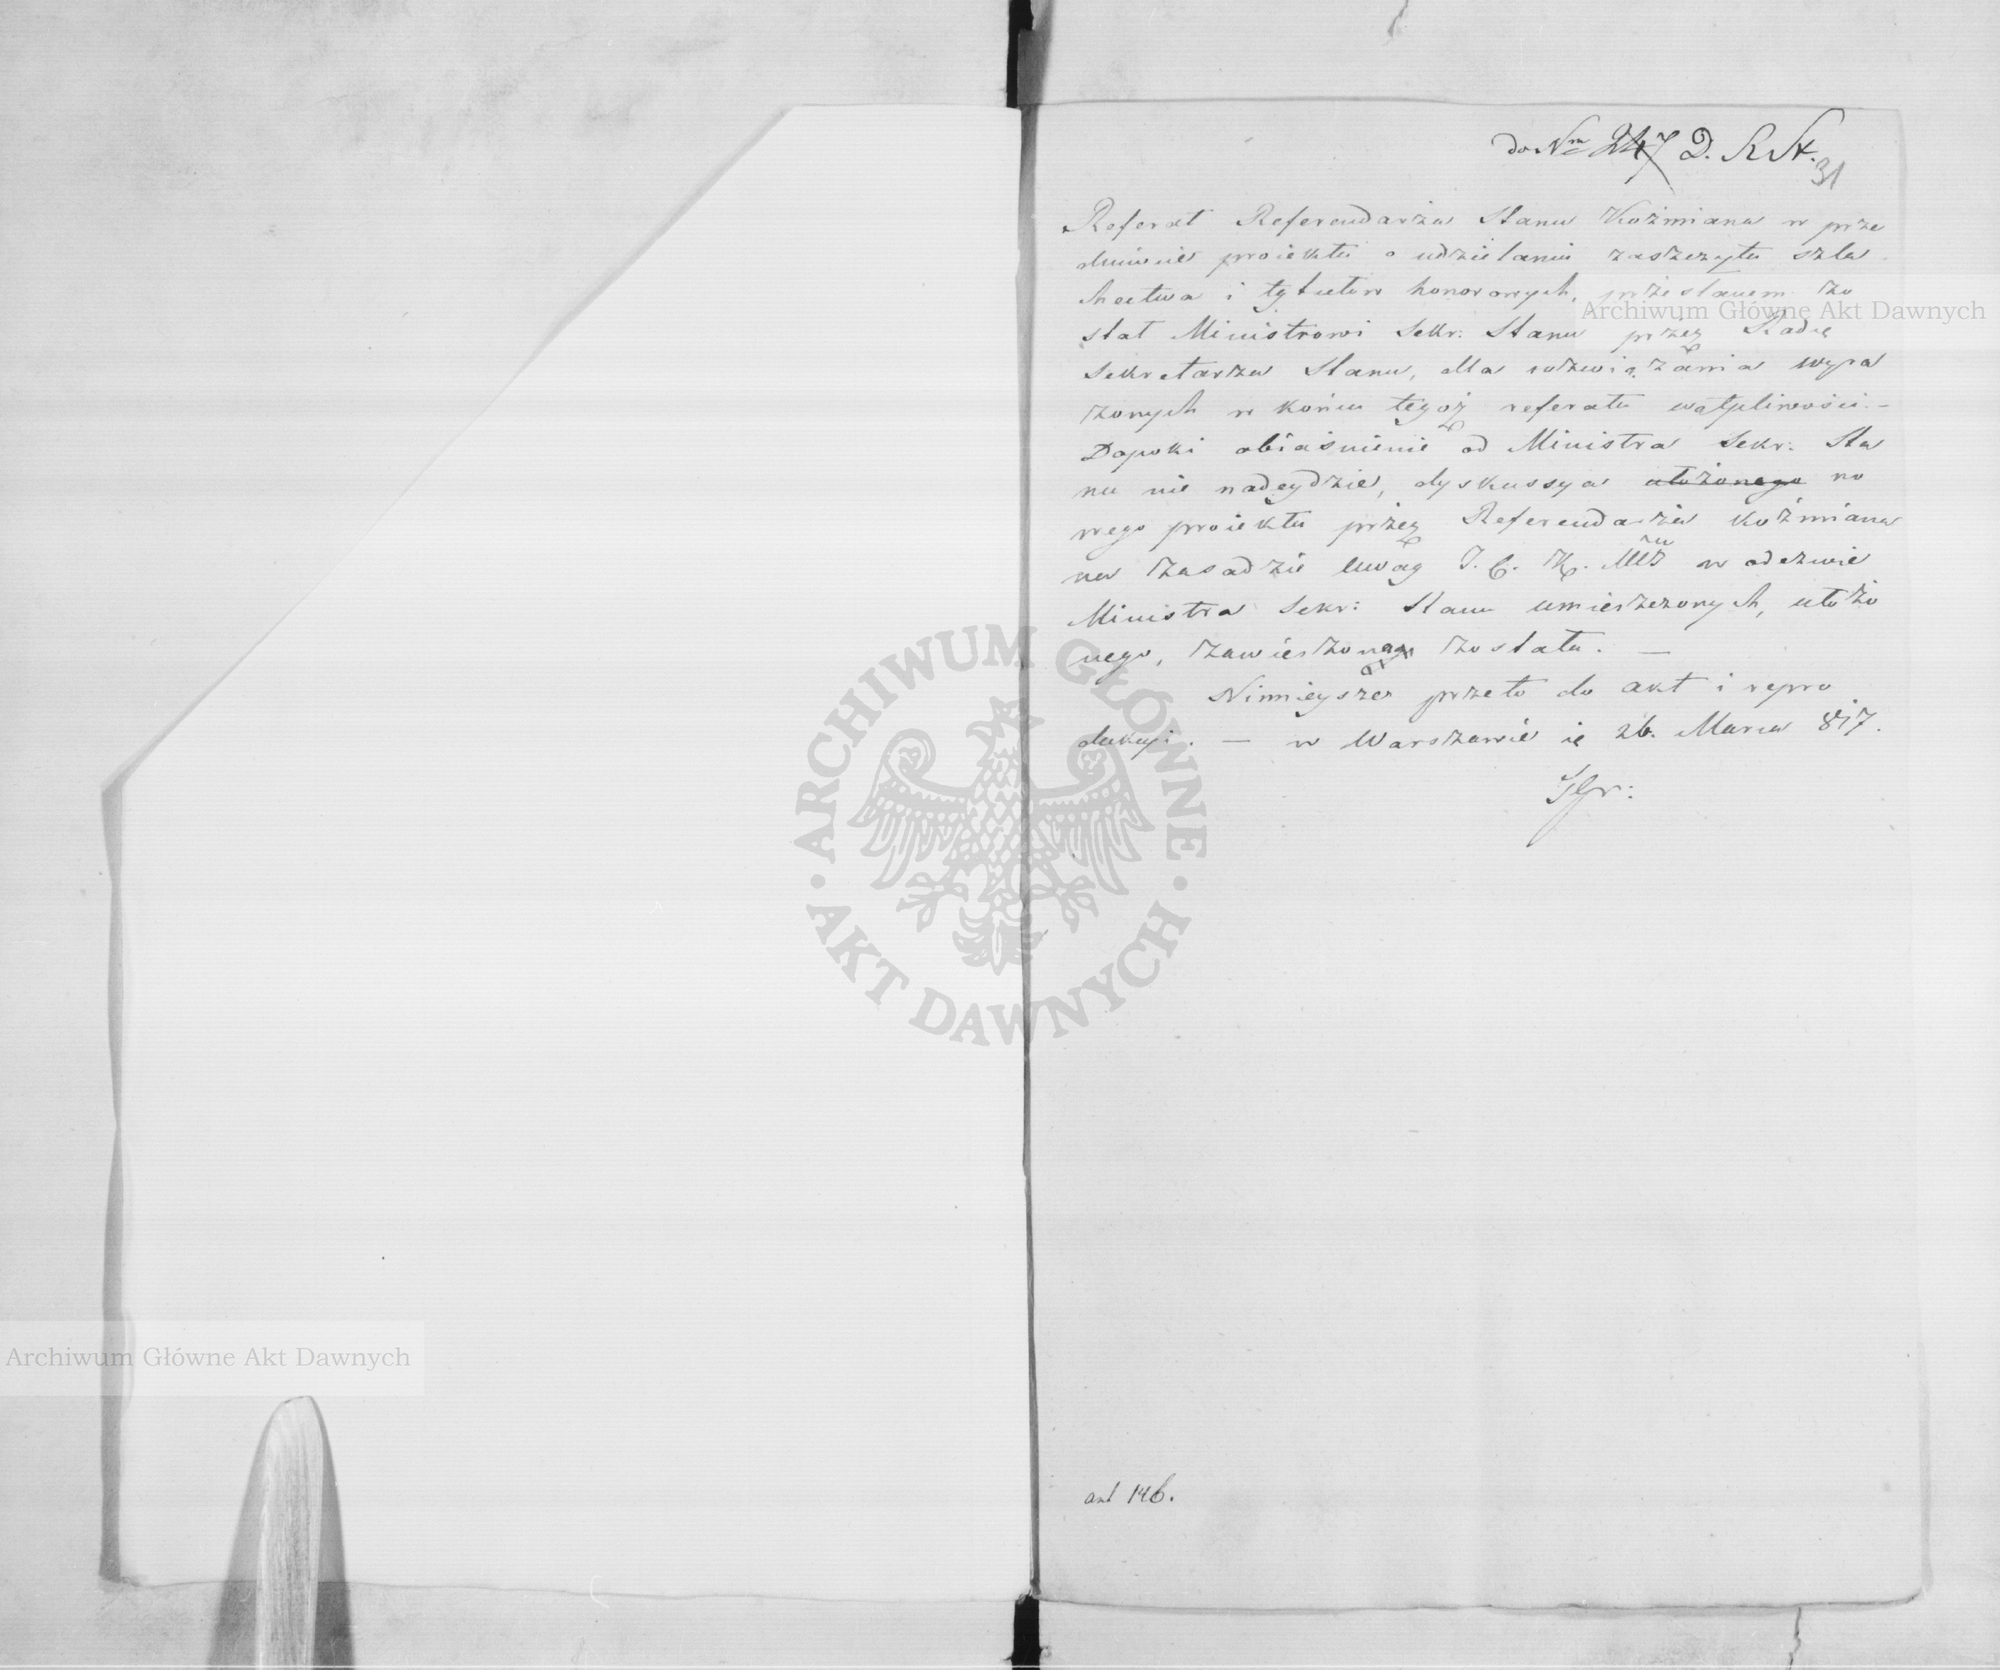 do Nru 247 D. R St.
31
Referat Referendarza Stanu Koźmiana w prze
dmiocie proiektu o udzielaniu zaszczytu szla
hectwa i tytułów honorowych, przesłanem zo
stał Ministrowi Sekr: Stanu przez Radcę
Sekretarza Stanu, dla rozwiązania wyra
żonych w końcu tegoż referatu wątpliwości. –
Dopoki obiaśnienie od Ministra Sekr: Sta
nu nie nadeydzie, dyskussya ułożonego no
wego proiektu przez Referendarza Koźmiana
na zasadzie uwag J. C. K. Mci w odezwie
Ministra Sekr: Stanu umieszczonych, ułożo
nego, zawieszoną została. —
Ninieysze przeto do akt i repro
dukcyi. — w Warszawie ie 26. Marca 817.
JGr:
ad 146.
Archiwum Główne Akt Dawnych
Archiwum Główne Akt Dawnych
ARCHIWUM GŁÓWNE
AKT DAWNYCH